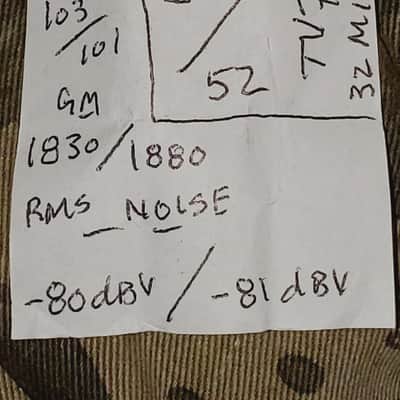 103
/
101
GM
1830/1880
RMS _ NOISE
-80dBV / -81dBV
/
52
TV7
32 MI